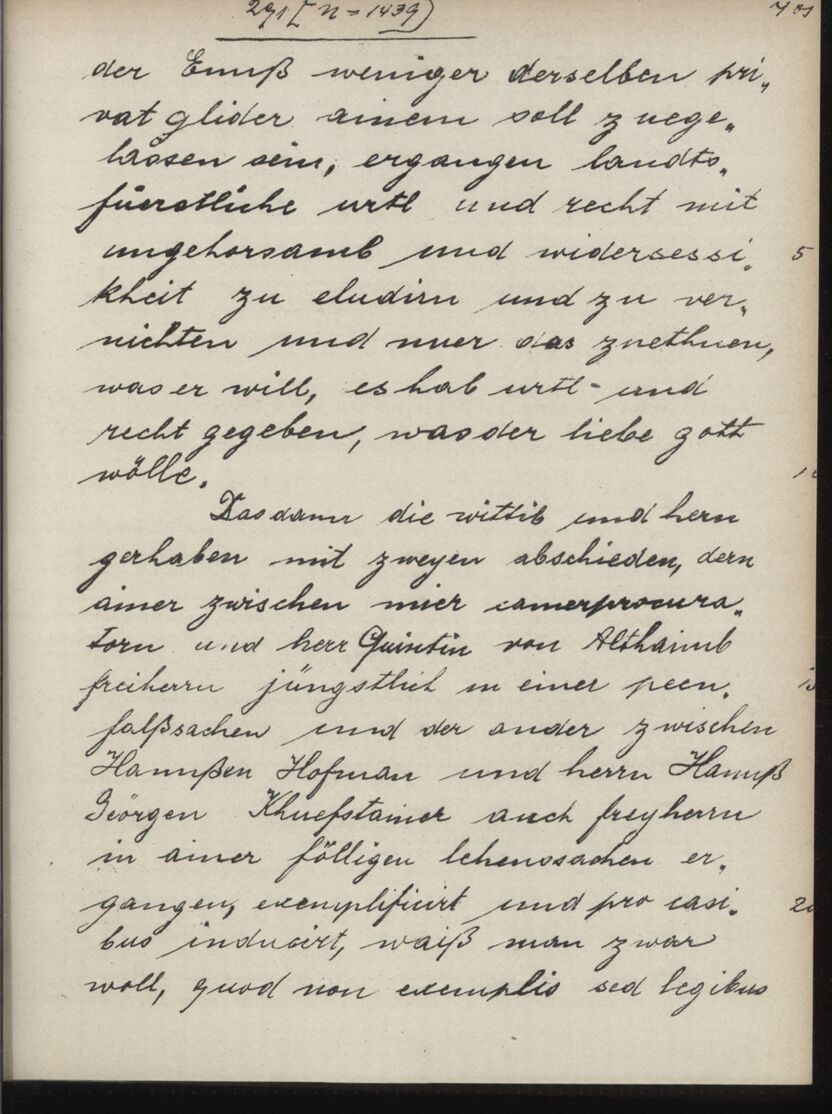 291 [ N = 1439)
der Ennß weniger derselben pri„
vat glider ainem soll zuege„
lassen sein, ergangen landts„
füerstliche urtl und recht mit
ungehorsamb und widersessi„ 5
kheit zu eludirn und zu ver„
nichten und nuer das zuethuen,
was er will, es hab urtl- und
recht gegeben, was der liebe gott
wölle.
Das dann die wittib und hern
gerhaben mit zweyen abschieden, dern
ainer zwischen mier camerprocura„
torn und herr Quintin von Althaimb
freiherrn jüngstlich in einer peen„
falßsachen und der ander zwischen
Hannßen Hofman und herrn Hannß
Geörgen Khuefstainer auch freyherrn
in ainer fölligen lehenssachen er„
gangen, exemplificirt und pro casi„ 20
bus inducirt, waiß man zwar
woll, quod non exemplis sed legibus